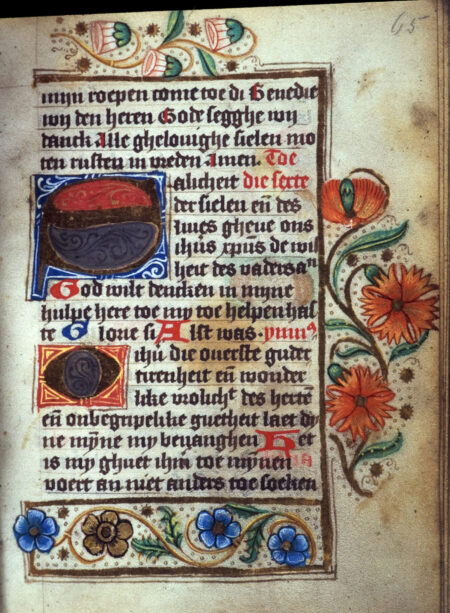 65
mijn roepen come toe di Benedie
wij den heren Gode segghe wij
danck Alle ghelouighe sielen mo
ten rusten in vreden Amen. Toe
Salicheit die serte
der sielen eñ des
liues gheue ons
ihūs xp̄us de wijs
heit des vaders aⁿ
God wilt dencken in mijne
hulpe here toe my te helpen has
te Glorie si Alst was. ymn⁹
O ihū die ouerste guder
tirenheit eñ wonder
like vrolichᵗ des hertē
eñ onbegripelike guetheit laet dy
ne mȳne my beuanghen Het
is my ghuet ihū toe mynen
voert an niet anders toe soeken